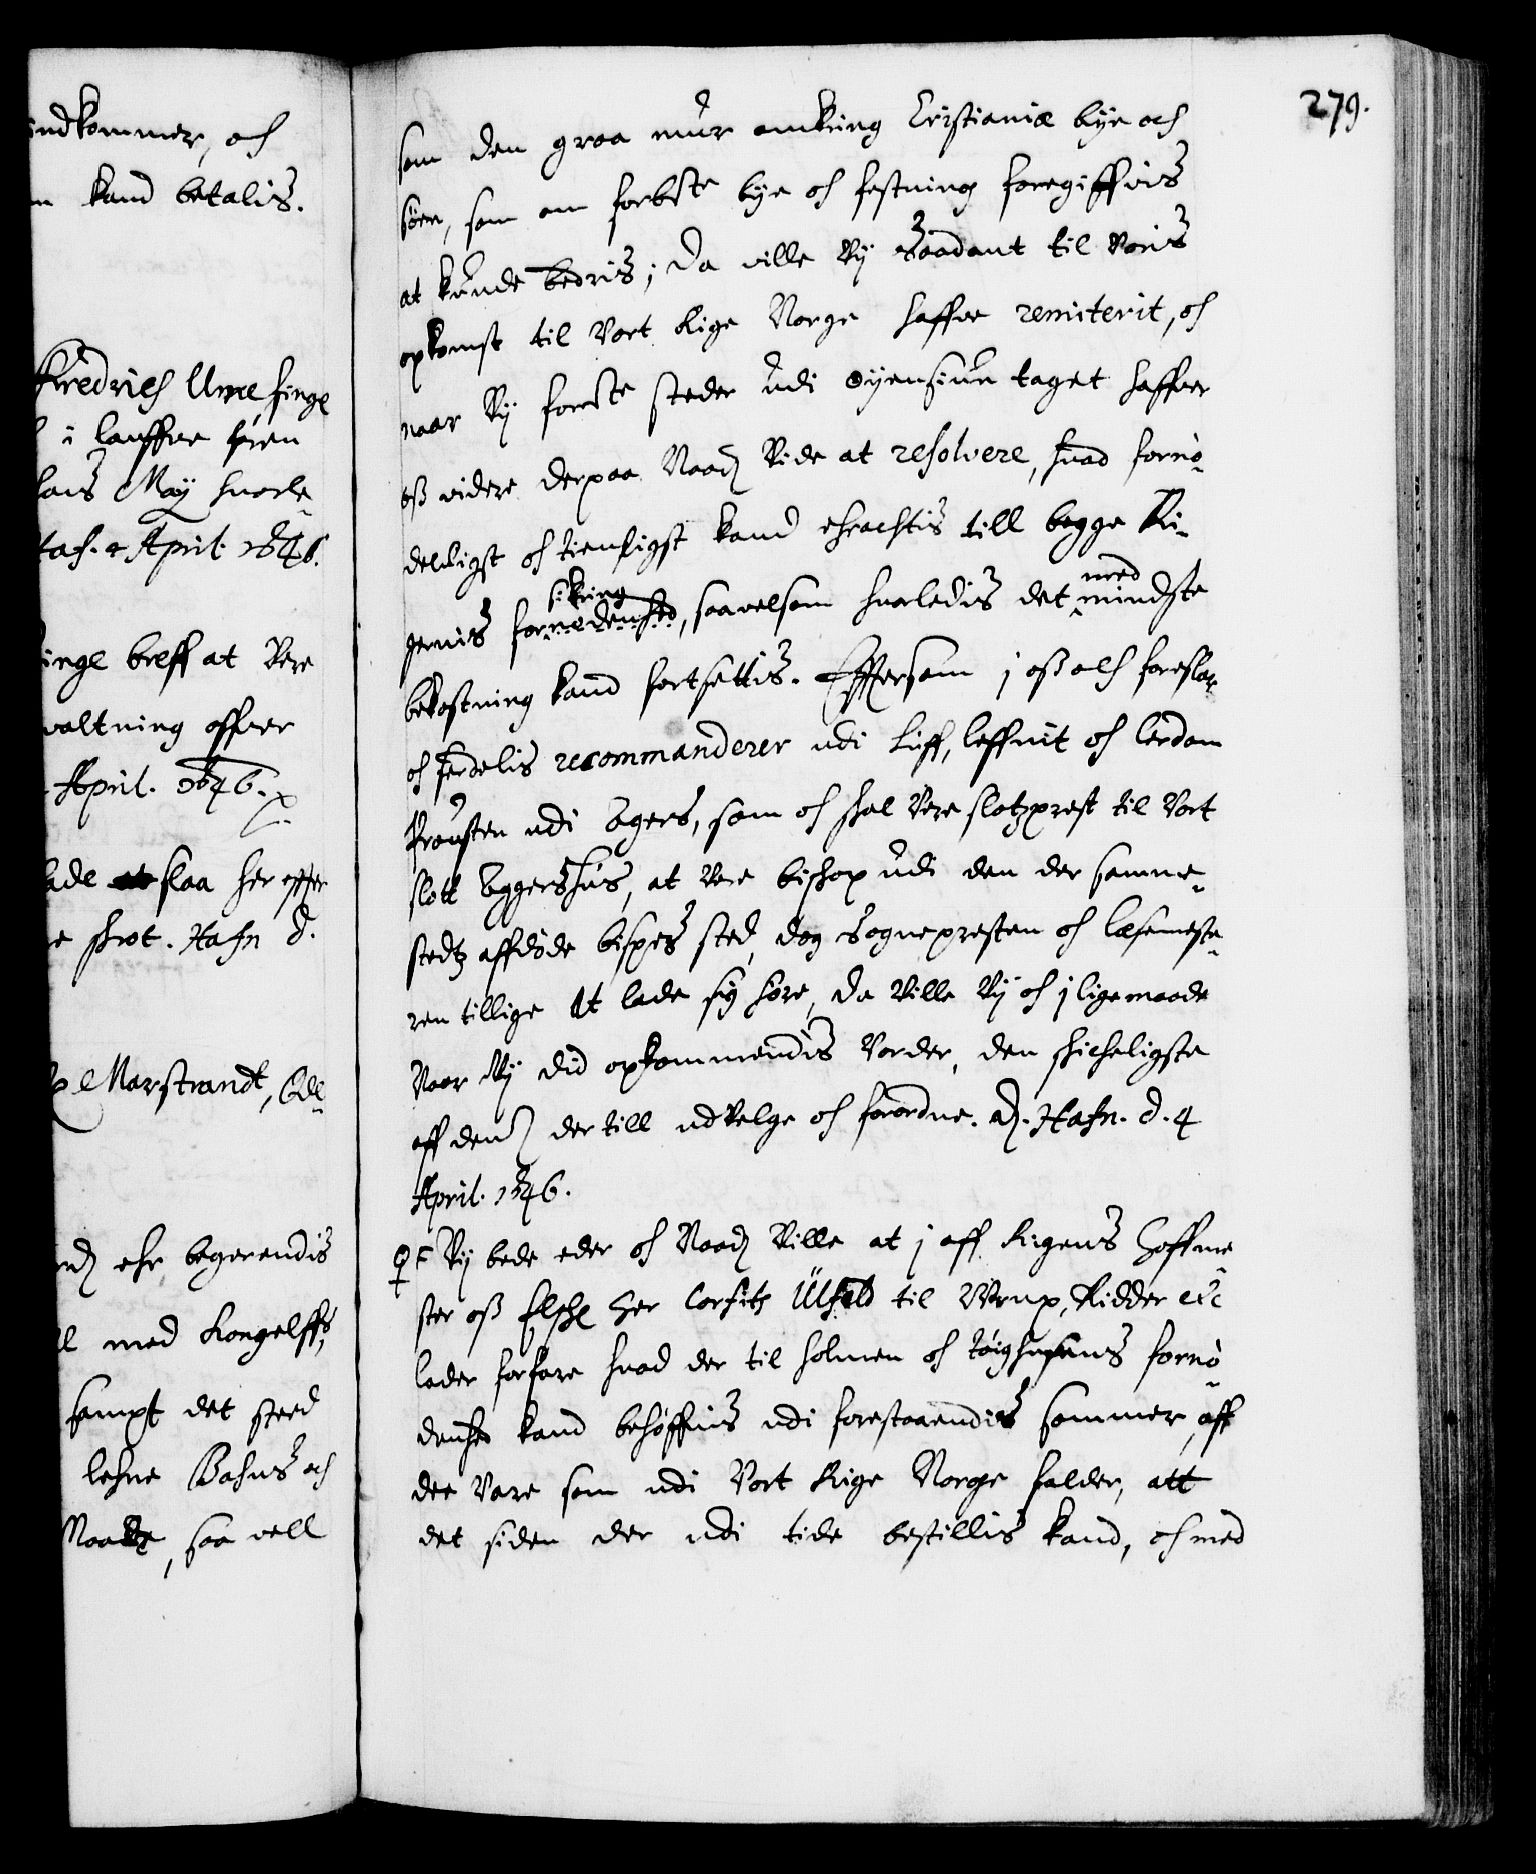 indkommer, och
kand betalis.
Fredrich Urne finge
i lauffue
hans May huorle¬
Haf. 4 April. 1646.
inge breff at vere
valtning offuer
April. 1646.
lade slaa her effter
skrot. Hafn d.
Marstrandt, Ode¬
ehr begerendis
med Kongelffs,
sampt det sted
lehne Bahus och
Maade, saa vell
279.
som den graa muur omkring Cristianiæ bye och
som om forbte bye och festning foregiffuis
at kunde bedris; Da ville Vy saadant til Voris
opkomst til Vort Rige Norge haffue remiterit, och
naar Vy forbte steder udi øyensiun taget haffuer
oss videre derpaa Naadl. Vide at resolvere, huad fornø¬
deligst och tienligst kand ehrachtis till begge Ri¬
gernis fornødenhed, saavelsom huorledis det med mindste
sikring
bekostning kand fortsettis. Effersom j oss och foreslar
och ferdelis recommanderer udi Liff, leffnit och lerdom
Prousten udi Agers, som och skal Vere slotzprest til Vort
slott Aggershus, at Vere bischop udi den der samme¬
stedtz affdøde bispes sted, dog Sognepresten och læsemeste¬
ren tillige at lade sig høre, da Ville Vy och j ligemaade
Naar Vy did opkommendis Vorder, den skicheligste
aff denl. der till udvelge och forordne. Hafn. d. 4
April. 1646.
Vy bede eder och Naadl. Ville at j aff Rigens Hoffme¬
ster oss Elskl. Her Corfitz Ulfeld til Urup, Ridder etc
lader forfare huad der til Holmen och tøighusens fornø¬
denhed kand behøffuis udi forestaaendis sommer, aff
dee Vare som udi Vort Rige Norge falder, att
det siden der udi tide bestillis kand, och med